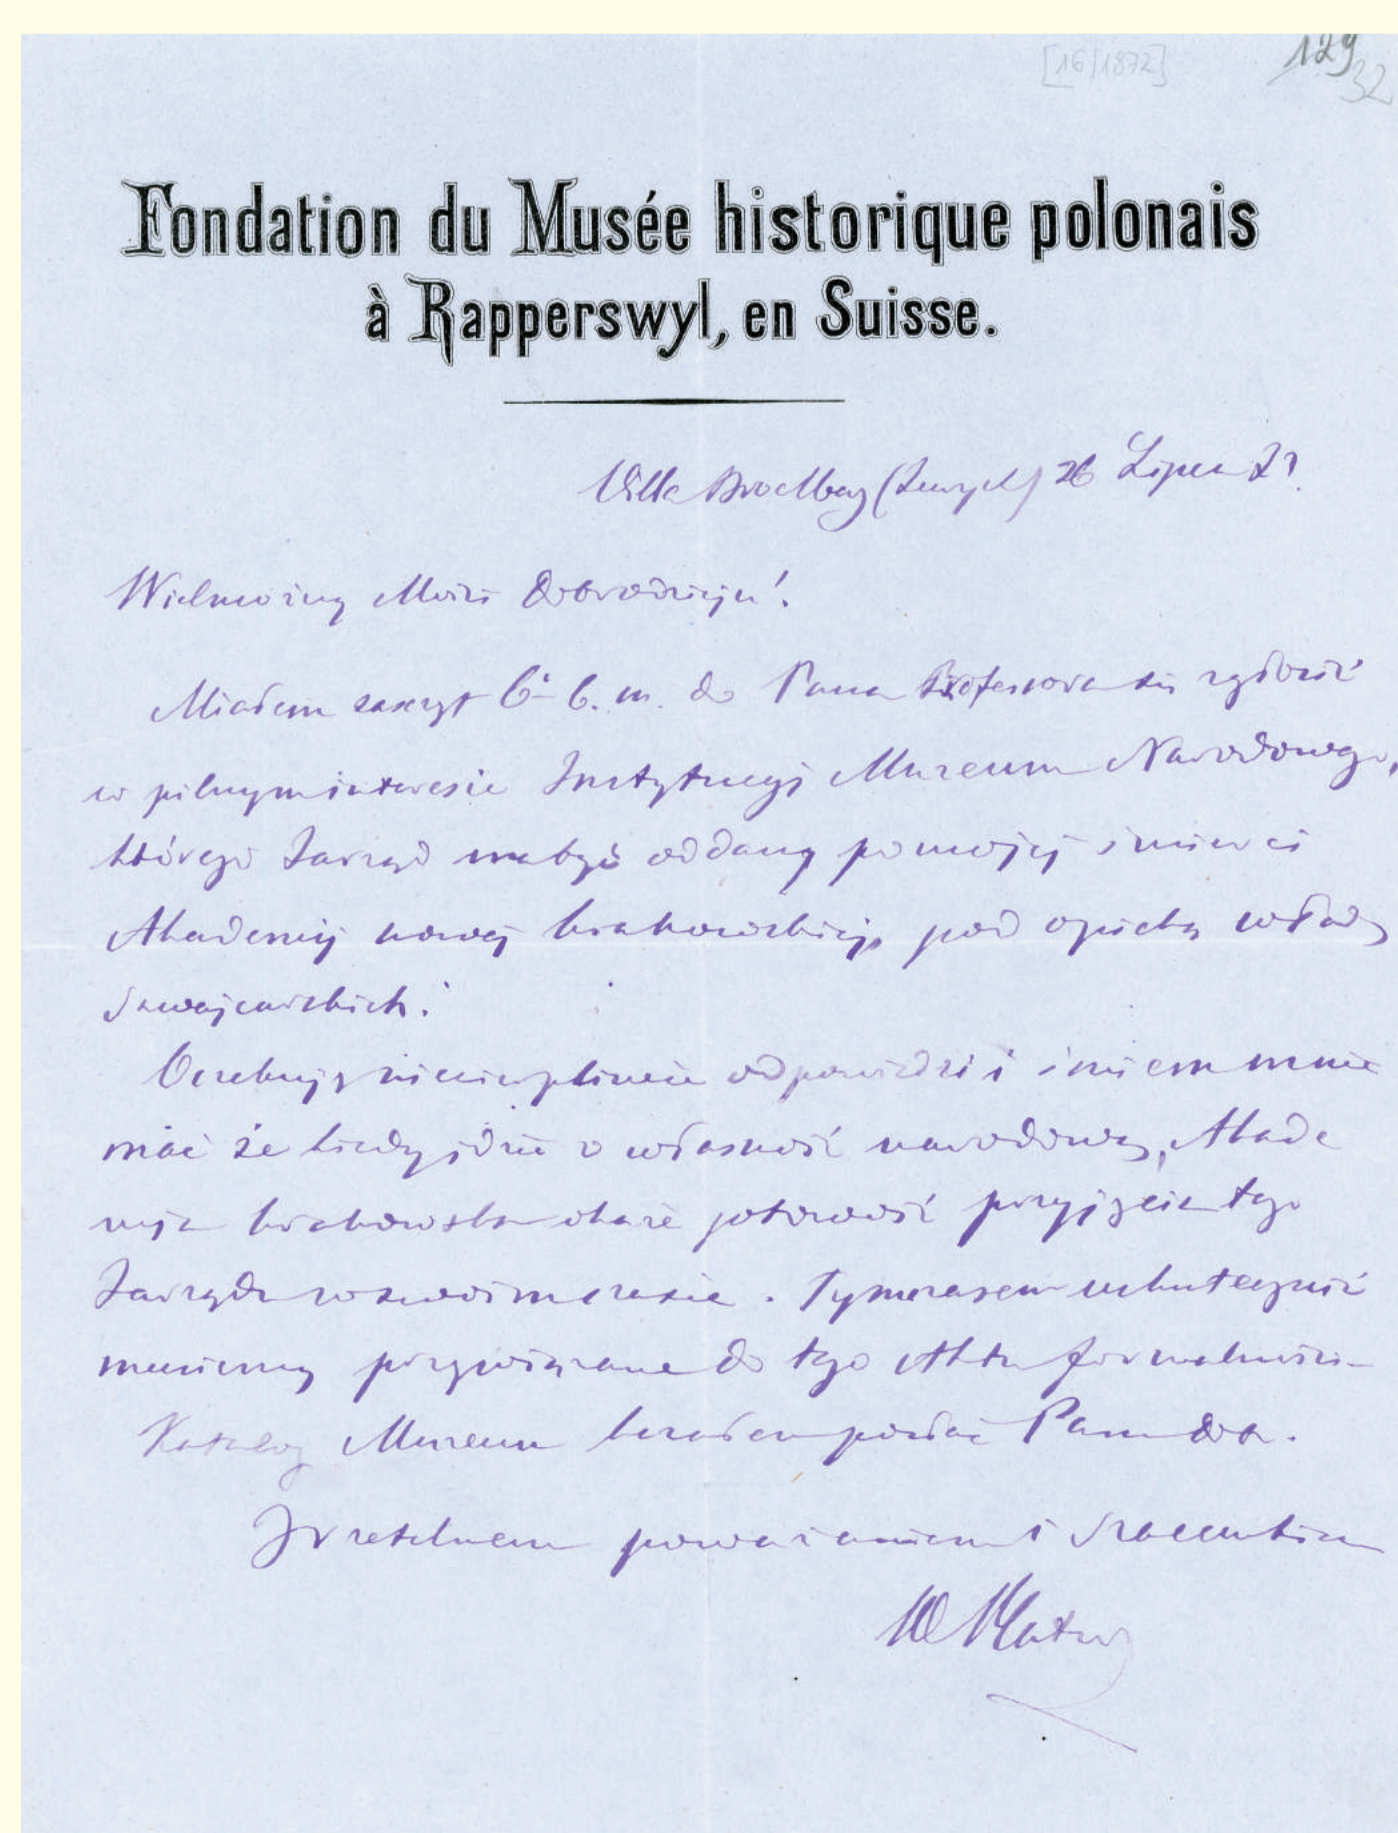 [16/1872]
129
32
Fondation du Musée historique polonais
à Rapperswyl, en Suisse.
Villa Broelberg (Zurych) 26 Lipca
Wielmożny Mości Dobrodzieju!
Miałem zaszczyt 6 b. m. do Pana Profesora się zgłosić
w pilnym interesie Instytucyj Muzeum Narodowego,
którego Zarząd ma być oddany po mojej śmierci
Akademij nowej krakowskiej, pod opieką władz
szwajcarskich.
Oczekuję niecierpliwie odpowiedzi i śmiem mnie
mać że kiedy idzie o własność narodową, Akade
mja krakowska okaże gotowość przyjęcia tego
Zarządu w swoim czasie. Tymczasem uskutecznić
musiemy przywiązane do tego Aktu formalności
Katalog Muzeum kazałem posłać Panu Dob.
Z rzetelnem poważaniem i szacunkiem
W Plater